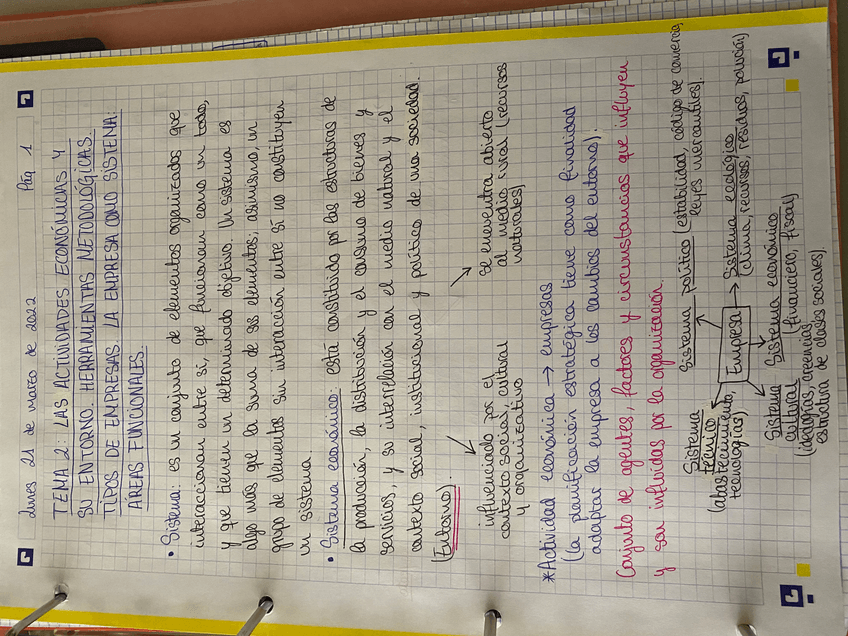 Lunes 21 de marzo de 2022 Pág 1
TEMA 2: LAS ACTIVIDADES ECONÓMICAS Y
SU ENTORNO. HERRAMIENTAS METODOLÓGICAS.
TIPOS DE EMPRESAS. LA EMPRESA COMO SISTEMA:
ÁREAS FUNCIONALES
• Sistema: es un conjunto de elementos organizados que
interaccionan entre sí, que funcionan como un todo,
y que tienen un determinado objetivo. Un sistema es
algo más que la suma de sus elementos; asimismo, un
grupo de elementos sin interacción entre sí no constituyen
un sistema.
• Sistema económico: está constituido por las estructuras de
la producción, la distribución y el consumo de bienes y
servicios, y su interrelación con el medio natural y el
contexto social, institucional y político de una sociedad.
(Entorno).
influenciado por el
contexto social, cultural
y organizativo
se encuentra abierto
al medio rural (recursos
naturales)
*Actividad económica → empresas
(la planificación estratégica tiene como finalidad
adaptar la empresa a los cambios del entorno).
Conjunto de agentes, factores y circunstancias que influyen
y son influidas por la organización.
Sistema político (estabilidad, código de comercio,
leyes mercantiles).
Sistema
técnico
(abastecimiento,
tecnologías)
Empresa → Sistema ecológico
(clima, recursos, residuos, polución)
Sistema económico
financiero, fiscal)
Sistema
cultural
(ideologías, creencias,
estructura de clases sociales).